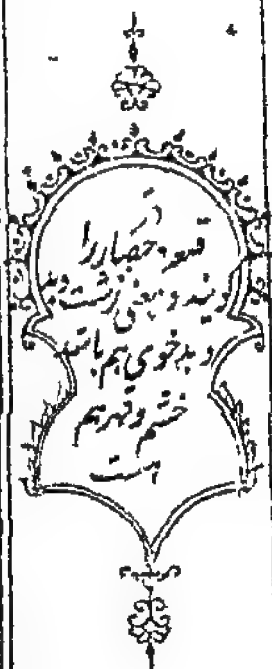 دژ
قلعه و حصار را
گویند و بمعنی زشت و بد
و بدخوی هم باشد
خشم و قهر هم
است